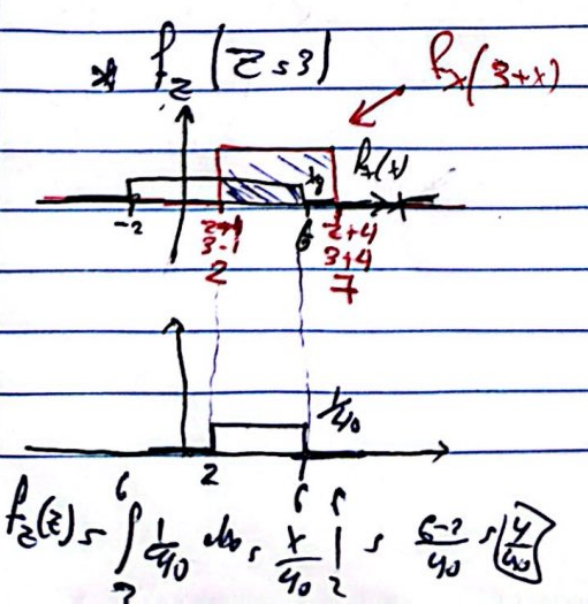 * f_z (z = 3)
f_x(3+x)
f_x(x)
1/8
-2
z-1
6
z+4
3-1
3+4
2
7
1/40
2
6
f_z(z) = ∫_2^6 1/40 dx = x/40 |_2^6 = 6-2/40 = 4/40